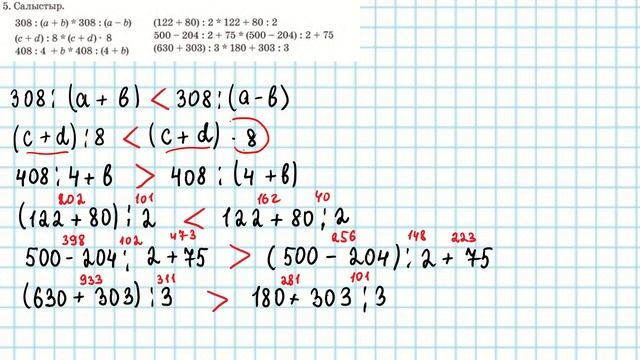 5. Салыстыр.
308 : (a + b) * 308 : (a – b)
(c + d) : 8 * (c + d) · 8
408 : 4 + b * 408 : (4 + b)
(122 + 80) : 2 * 122 + 80 : 2
500 – 204 : 2 + 75 * (500 – 204) : 2 + 75
(630 + 303) : 3 * 180 + 303 : 3
308 : (a + b) < 308 : (a – b)
(c + d) : 8 < (c + d) · 8
408 : 4 + b > 408 : (4 + b)
202 101 162 40
(122 + 80) : 2 < 122 + 80 : 2
398 102 473 256 148 223
500 – 204 : 2 + 75 > (500 – 204) : 2 + 75
933 311 281 101
(630 + 303) : 3 > 180 + 303 : 3